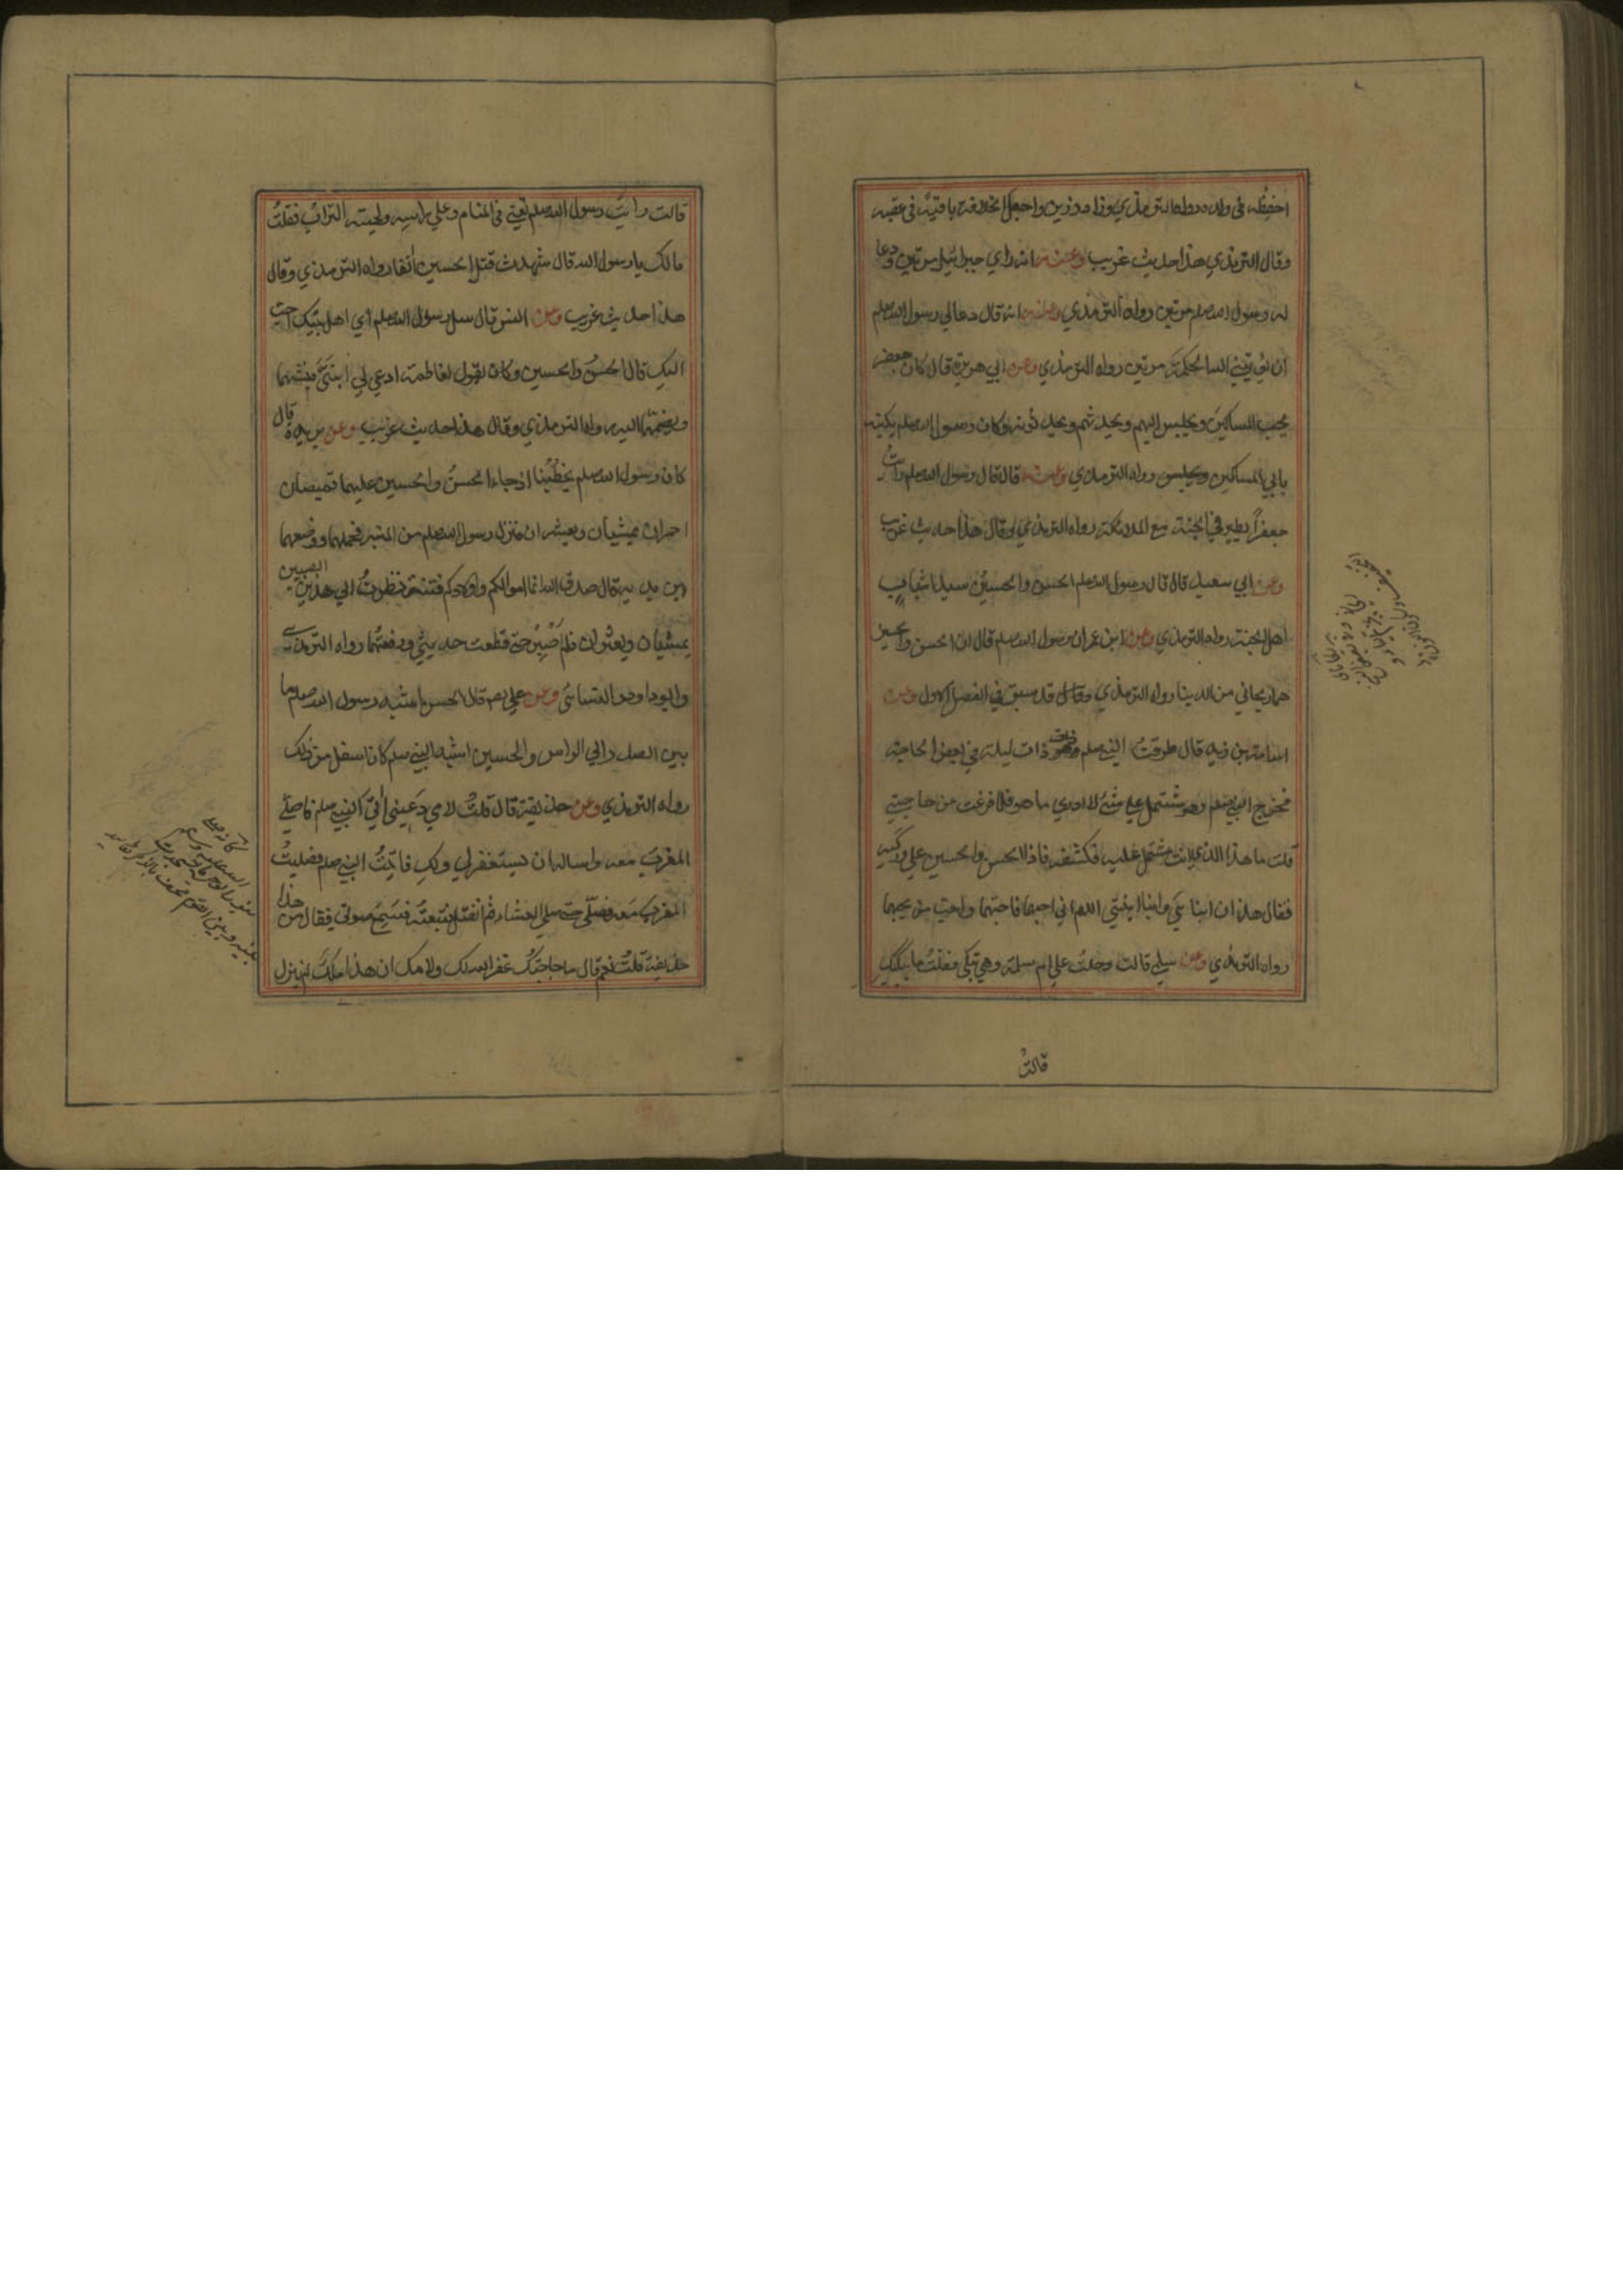 احفظه في ولده رواه الترمذي وزاد رزين واجعل الخلافة باقية في عقبه
وقال الترمذي هذا حديث غريب وعنه انه راي جبرائيل مرتين ودعا
له رسول الله صلعم مرتين رواه الترمذي وعنه انه قال دعا لي رسول الله صلعم
ان يؤتيني الله الحكمة مرتين رواه الترمذي وعن ابي هريرة قال كان جعفر
يحب المساكين ويجلس اليهم ويحدثهم ويحدثونه وكان رسول الله صلعم يكنيه
بابي المساكين رواه الترمذي وعنه قال قال رسول الله صلعم رايت
جعفراً يطير في الجنة مع الملائكة رواه الترمذي وقال هذا حديث غريب
وعن ابي سعيد قال قال رسول الله صلعم الحسن والحسين سيدا شباب
اهل الجنة رواه الترمذي وعن ابن عمر ان رسول الله صلعم قال ان الحسن والحسين
هما ريحاني من الدنيا رواه الترمذي وقد سبق في الفصل الاول وعن
اسامة بن زيد قال طرقت النبي صلعم ذات ليلة في بعض الحاجة
فخرج النبي صلعم وهو مشتمل علي شئ لا ادري ما هو فلما فرغت من حاجتي
قلت ما هذا الذي انت مشتمل عليه فكشفه فاذا الحسن والحسين علي وركيه
فقال هذان ابناي وابنا ابنتي اللهم اني احبهما فاحبهما واحب من يحبهما
رواه الترمذي وعن سلمي قالت دخلت علي ام سلمة وهي تبكي فقلت ما يبكيك
قالت
قالت رايت رسول الله صلعم تعني في المنام وعلي راسه ولحيته التراب فقلت
مالك يا رسول الله قال شهدت قتل الحسين انفا رواه الترمذي وقال
هذا حديث غريب وعن انس قال سئل رسول الله صلعم اي اهل بيتك احب
اليك قال الحسن والحسين وكان يقول لفاطمة ادعي لي ابنيّ فيشمهما
ويضمهما اليه رواه الترمذي وقال هذا حديث غريب وعن بريدة قال
كان رسول الله صلعم يخطبنا اذ جاء الحسن والحسين عليهما قميصان
احمران يمشيان ويعثران فنزل رسول الله صلعم من المنبر فحملهما ووضعهما
بين يديه قال صدق الله انما اموالكم واولادكم فتنة نظرت الي هذين الصبيين
يمشيان ويعثران فلم اصبر حتي قطعت حديثي ورفعتهما رواه الترمذي
وابو داود والنسائي وعن علي رضه قال الحسن اشبه رسول الله صلعم ما
بين الصدر الي الراس والحسين اشبه النبي صلعم ما كان اسفل من ذلك
رواه الترمذي وعن حذيفة قال قلت لامي دعيني اتي النبي صلعم فاصلي
المغرب معه واساله ان يستغفر لي ولك فاتيت النبي صلعم فصليت
المغرب معه فصلي حتي صلي العشاء ثم انفتل فتبعته فسمع صوتي فقال من هذا
حذيفة قلت نعم قال ما حاجتك غفر الله لك ولامك ان هذا ملك لم ينزل